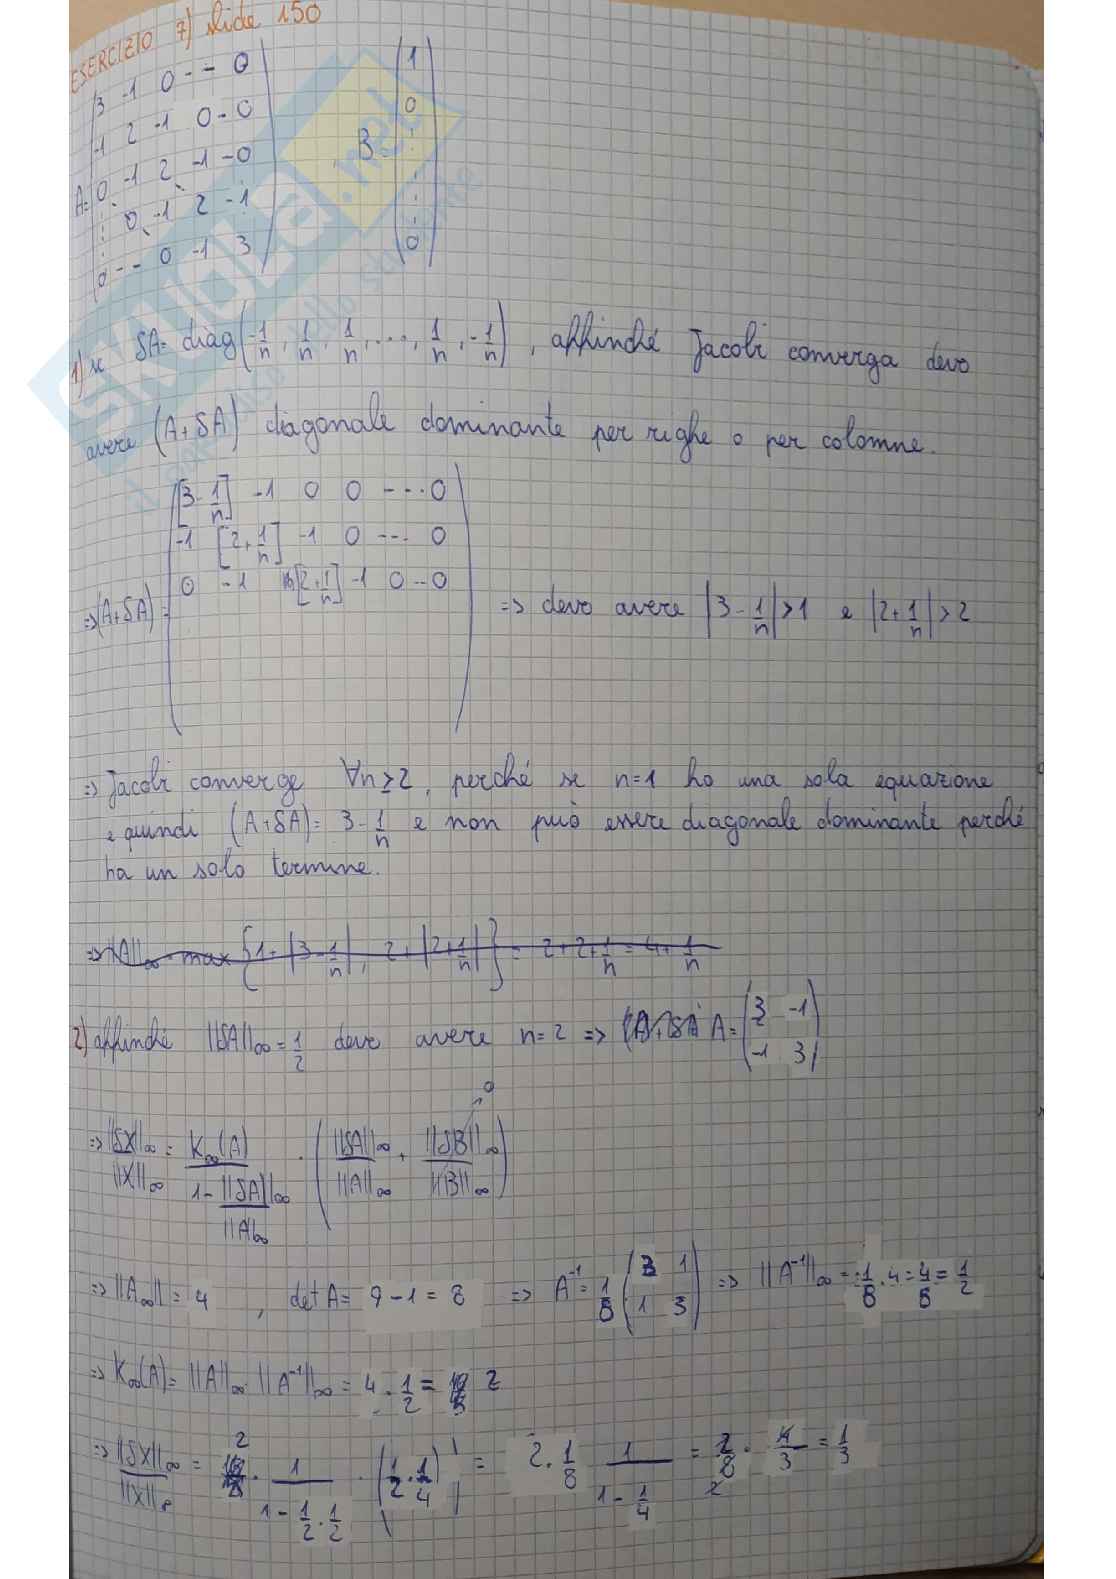 ESERCIZIO 7) slide 150
A= (3 -1 0 - - 0
-1 2 -1 0 - 0
0 -1 2 -1 - 0
⋮ 0 -1 2 -1
0 - - 0 -1 3) , B= (1 0 ⋮ 0)
1) se δA= diag(-1/n, 1/n, 1/n, ..., 1/n, -1/n) , affinché Jacobi converga devo
avere (A+δA) diagonale dominante per righe o per colonne.
=> (A+δA) = ([3-1/n] -1 0 0 --- 0
-1 [2+1/n] -1 0 --- 0
0 -1 [2+1/n] -1 0 -- 0) => devo avere |3-1/n|>1 e |2+1/n|>2
=> Jacobi converge ∀n≥2, perché se n=1 ho una sola equazione
e quindi (A+δA)= 3-1/n e non può essere diagonale dominante perché
ha un solo termine.
=> ||A||∞ = max {1+|3-1/n|, 2+|2+1/n|} = 2+2+1/n = 4+1/n
2) affinché ||δA||∞=1/2 devo avere n=2 => (A+δA) A= (3 -1
-1 3)
=> ||δX||∞/||X||∞ = K∞(A)/(1-||δA||∞/||A||∞) · (||δA||∞/||A||∞ + ||δB||∞/||B||∞) 0
=> ||A∞|| = 4 , det A= 9-1= 8 => A⁻¹= 1/8 (3 1
1 3) => ||A⁻¹||∞ = 1/8 · 4 = 4/8 = 1/2
=> K∞(A)= ||A||∞ ||A⁻¹||∞ = 4 · 1/2 = 2
=> ||δX||∞/||X||∞ = 2 · 1/(1-1/2·1/2) · (1/2·1/4) = 2·1/8 1/(1-1/4) = 2/8 · 4/3 = 1/3
SKUOLA.net